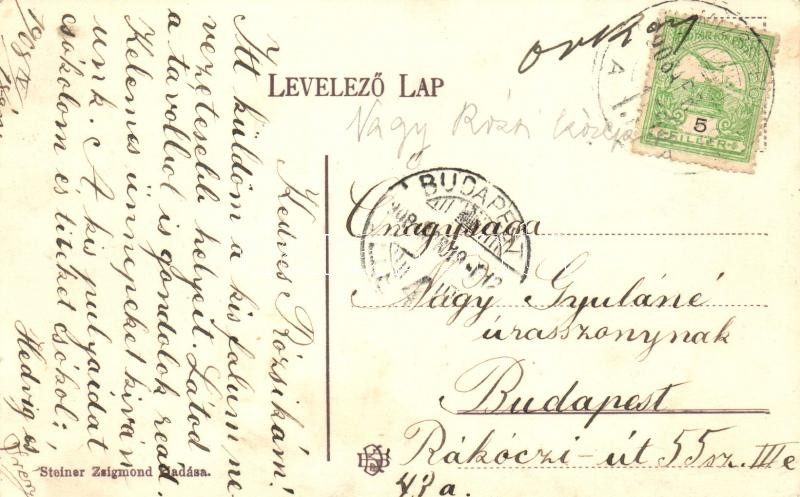 LEVELEZŐ LAP
Nagy Rózsi
5
FILLER
BUDAPEST
Őnagysága
Nagy Gyuláné
úrasszonynak
Budapest
Rákóczi-út 55 sz. III e
43 a.
Kedves Rózsikám!
Itt küldöm a kis falum ne
vezetesebb helyeit. Látod
a távolbol is gondolok reád.
Kelemes ünnepeket kiván
unk. A kis pulyáidat
csókolom és titeket csókol:
Hedvig és
Steiner Zsigmond kiadása.